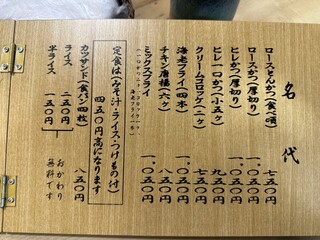 名代
ロースとんかつ(食べ頃) 七五〇円
ロースかつ(厚切り) 一、〇五〇円
ヒレかつ(厚切り) 一、〇五〇円
ヒレ一口かつ(小五ヶ) 九五〇円
クリームコロッケ(二ヶ) 七五〇円
海老フライ(四本) 一、〇五〇円
チキン唐揚(六ヶ) 七五〇円
ミックスフライ 一、〇五〇円
定食は(みそ汁・ライス・つけもの付)
四五〇円高になります
カツサンド(食パン四枚) 八五〇円
ライス 二五〇円
半ライス 一五〇円
おかわり
無料です